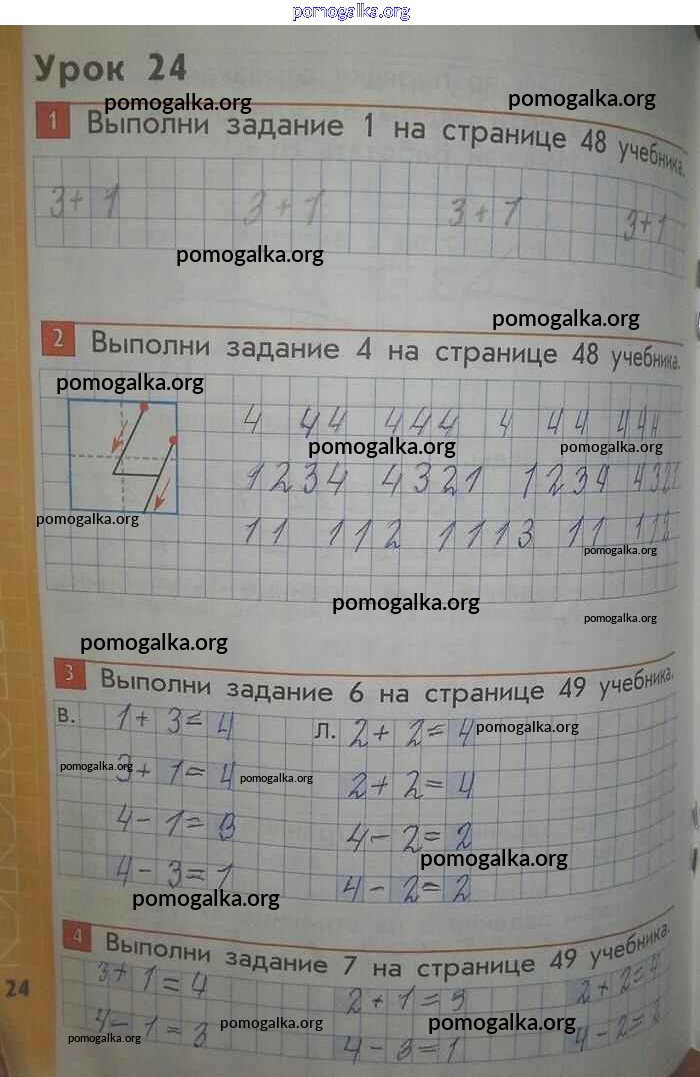 pomogalka.org
Урок 24
pomogalka.org pomogalka.org
1 Выполни задание 1 на странице 48 учебника.
3+1 3+1 3+1 3+1
pomogalka.org
pomogalka.org
2 Выполни задание 4 на странице 48 учебника.
pomogalka.org
4 44 444 4 44 444
pomogalka.org pomogalka.org
1234 4321 1234 4321
pomogalka.org
11 112 1113 11 112
pomogalka.org
pomogalka.org
pomogalka.org
pomogalka.org
3 Выполни задание 6 на странице 49 учебника.
В. 1+3=4 Л. 2+2=4 pomogalka.org
pomogalka.org 3+1=4 pomogalka.org 2+2=4
4-1=3 4-2=2
pomogalka.org
4-3=1 4-2=2
pomogalka.org
4 Выполни задание 7 на странице 49 учебника.
3+1=4 2+1=3 2+2=4
24
4-1=3 pomogalka.org pomogalka.org 4-2=2
pomogalka.org 4-3=1